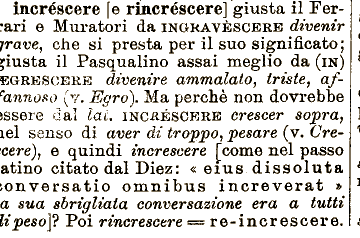 incréscere [e rincréscere] giusta il Fer-
rari e Muratori da INGRAVÈSCERE divenir
grave, che si presta per il suo significato;
giusta il Pasqualino assai meglio da (IN)
ÆGRESCERE divenire ammalato, triste, af-
fannoso (v. Egro). Ma perchè non dovrebbe
essere dal lat. INCRÉSCERE crescer sopra,
nel senso di aver di troppo, pesare (v. Cre-
scere), e quindi increscere [come nel passo
latino citato dal Diez: « eius dissoluta
conversatio omnibus increverat »
la sua sbrigliata conversazione era a tutti
di peso]? Poi rincrescere = re-increscere.